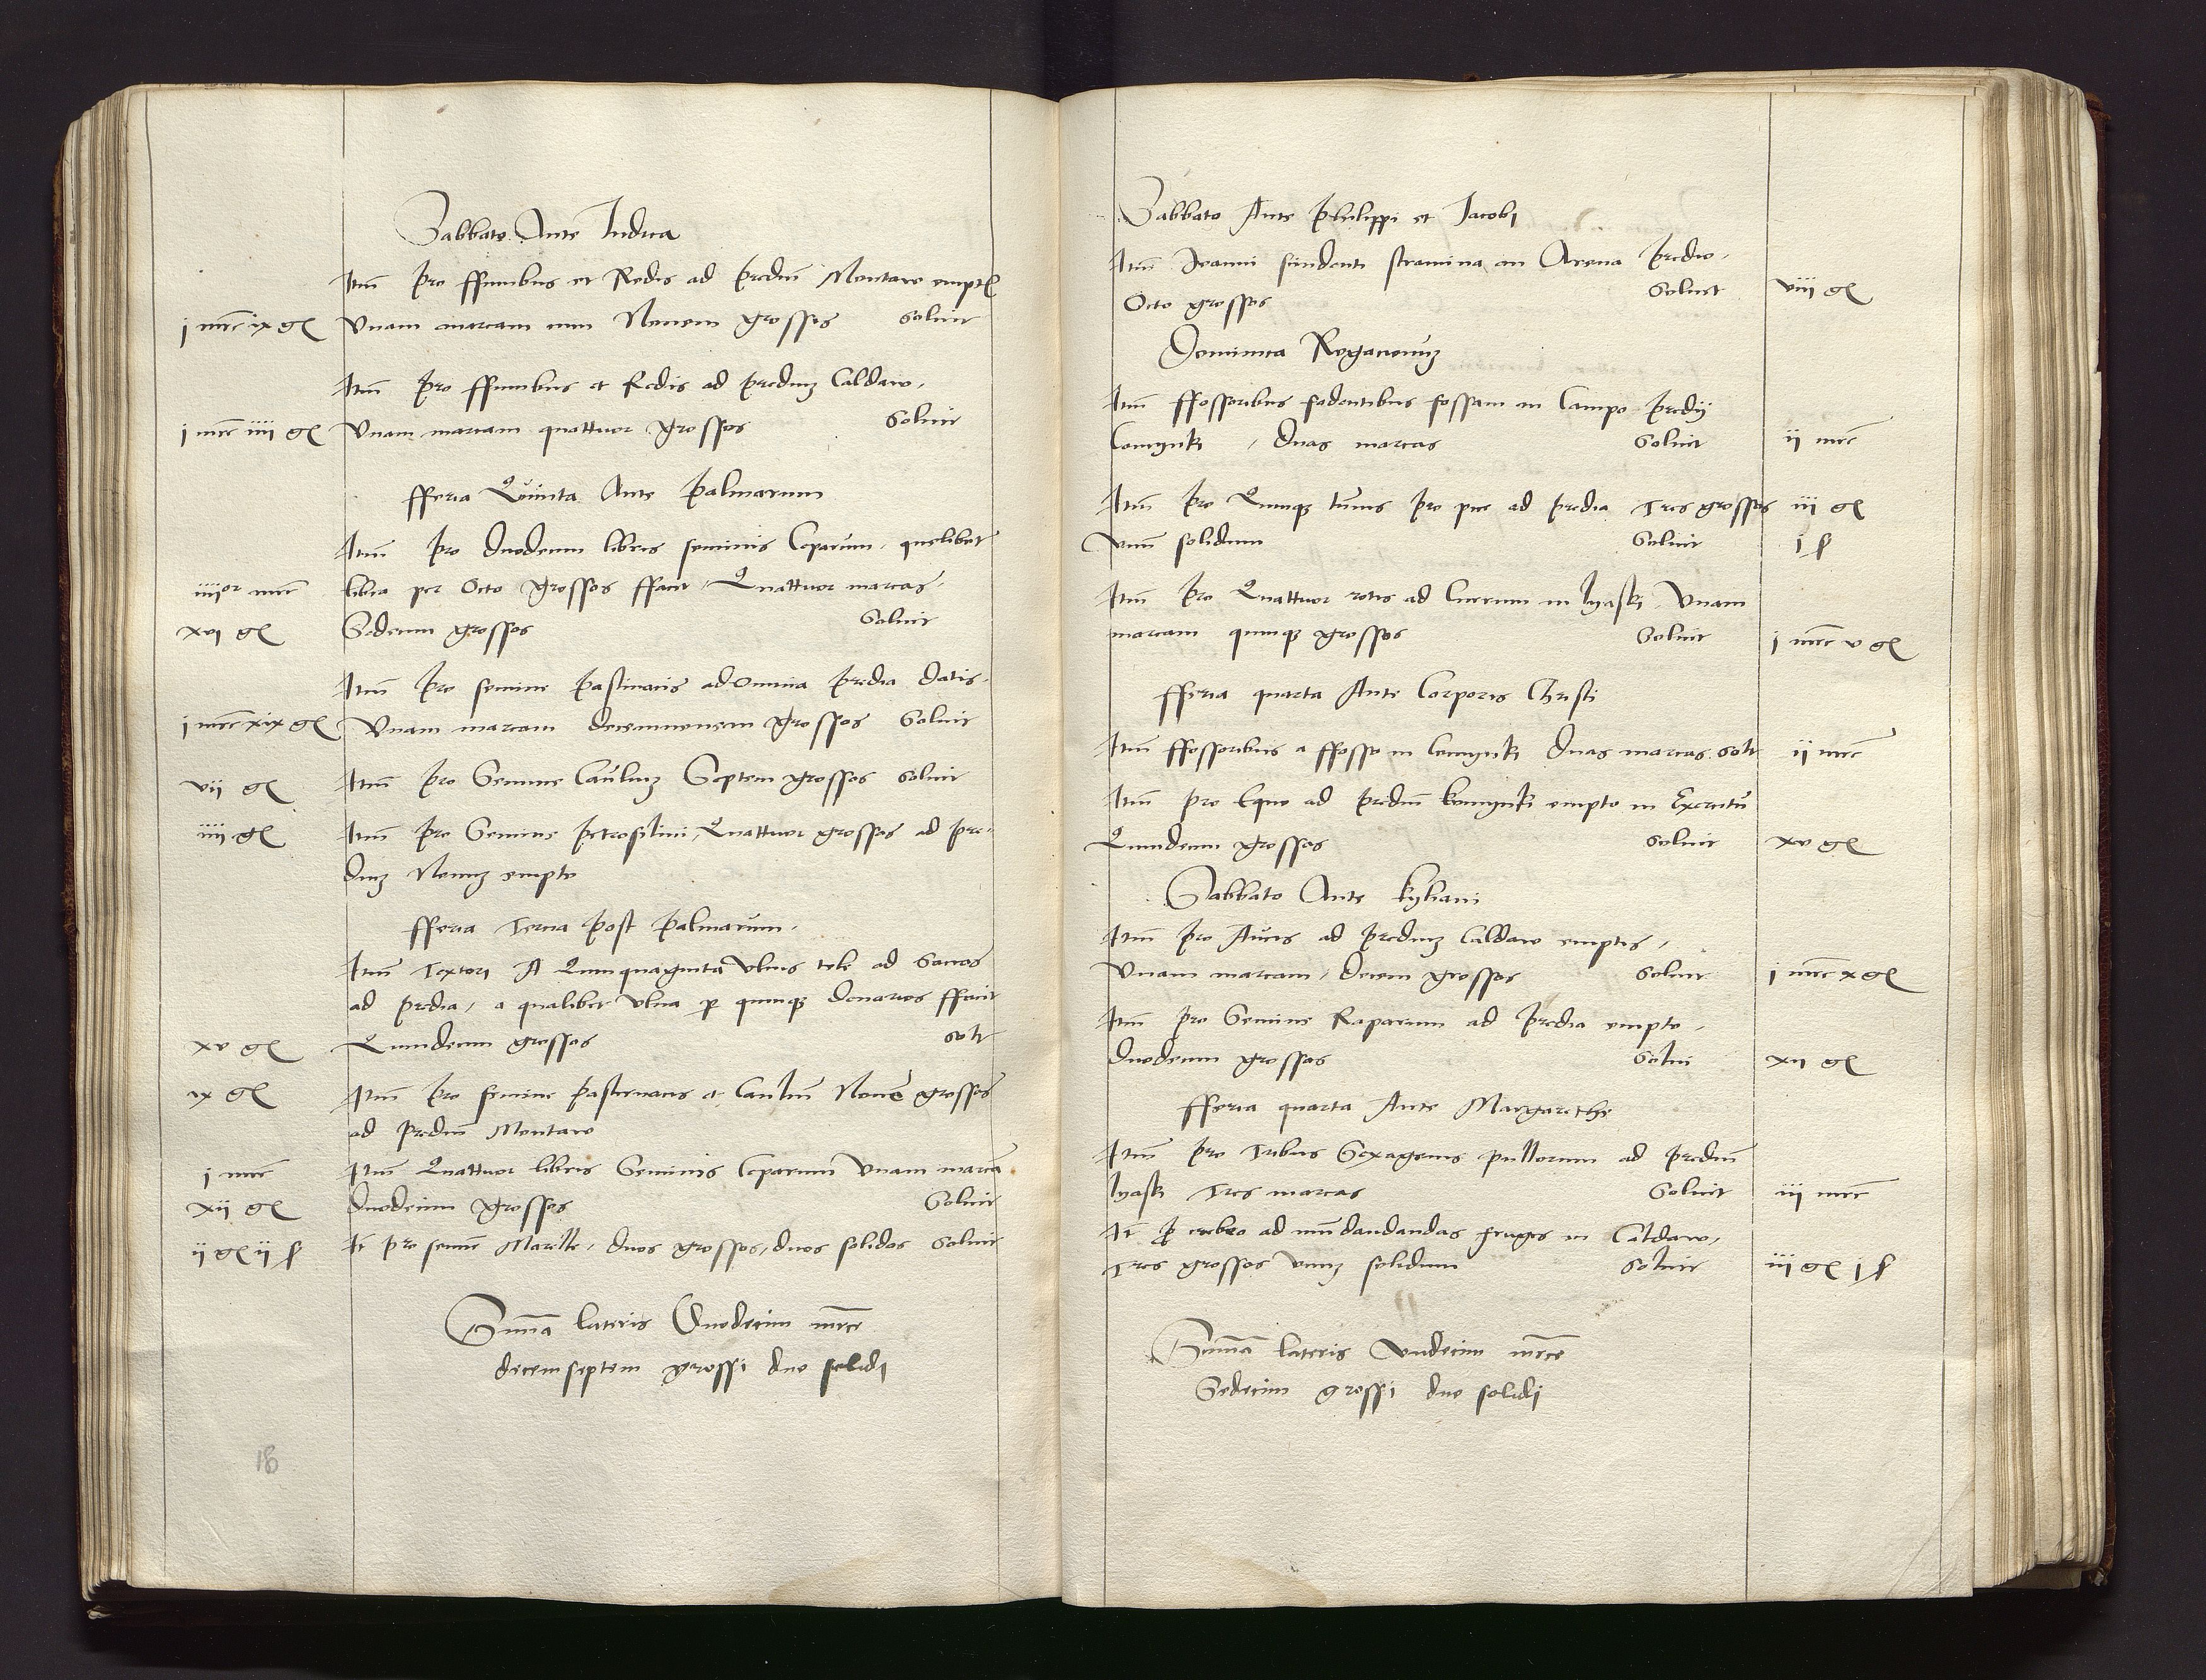 Sabbato Ante Iudica
Itm̄ pro ffunibus et Redis ad prediū Montaw empt
j mrc ix gl Vnam marcam cum Nouem grossos Soluit
Itm̄ pro ffunibus et Redis ad prediuʒ Caldaw,
j mrc iiij gl Vnam marcam quattuor grossos Soluit
fferia Quinta Ante palmarum
Itm̄ pro duodecim libris seminis Ceparum, quelibet
iiijor mrc libra per Octo grossos ffacit, Quattuor marcas,
xvj gl Sedecim grossos Soluit
Itm̄ pro semine pastinacis ad omnia predia datis,
j mrc xix gl Vnam marcam decemnouem grossos Soluit
vij gl Itm̄ pro Semine Cauliuʒ Septem grossos soluit
iiij gl Itm̄ pro Semine petrosilini, Quattuor grossos ad pre-
diuʒ Nouuʒ empto
fferia Tercia post palmarum,
Itm̄ Textori A Quinquaginta Vlnis tele ad Saccos
ad predia, a qualibet vlna p quinqʒ denarios ffacit
xv gl Quindecim grossos solt
ix gl Itm̄ pro semine pastervacis et Cauliū Nouē grossos
ad prediū Montaw
j mrc Itm̄ Quattuor libris Seminis Ceparum Vnam marcā
xij gl duodecim grossos Soluit
ij gl ij ß It pro semīe, duos grossos, duos solidos Soluit
Sum̄a lateris Duodecim mrce
decemseptem grossi duo solidi
18
Sabbato Ante Philippi et Jacobj
Itm̄ Joanni scindenti stramina in Arena predio,
Octo grossos Soluit viij gl
Dominica Rogacionuʒ
Itm̄ ffossoribus fodentibus fossam in Campo predij
Comynki, duas marcas Soluit ij mrc
Itm̄ pro Quinqʒ tunis pro pice ad predia Tres grossos iij gl
vnū solidum Soluit j ß
Itm̄ pro Quattuor rotis ad Currum in lyaski, Vnam
marcam quinqʒ grossos Soluit j mrc v gl
fferia quarta Ante Corporis Christi
Itm̄ ffossoribus a ffosso in Comynki duas marcas solt ij mrc
Itm̄ pro Equo ad prediū komynki empto in Exercitū
Quindecim grossos Soluit xv gl
Sabbato Ante kyliani
Itm̄ pro Aucis ad prediuʒ Caldaw emptis,
Vnam marcam, decem grossos Soluit j mrc x gl
Itm̄ pro Semine Raparum ad predia empto,
duodecim grossos Solui xij gl
fferia quarta Ante Margarethe
Itm̄ pro Tribus Sexagenis pullorum ad prediū
lyaski Tres marcas Soluit iij mrc
It p crebro ad mūdandandas fruges in Caldaw,
Tres grossos vnuʒ solidum Soluit iij gl j ß
Sum̄a lateris Vndecim mrce
Sedecim grossi duo solidj